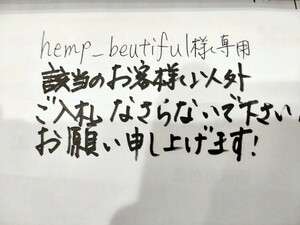 hemp_beutiful様専用
該当のお客様以外
ご入札なさらないで下さい!
お願い申し上げます!